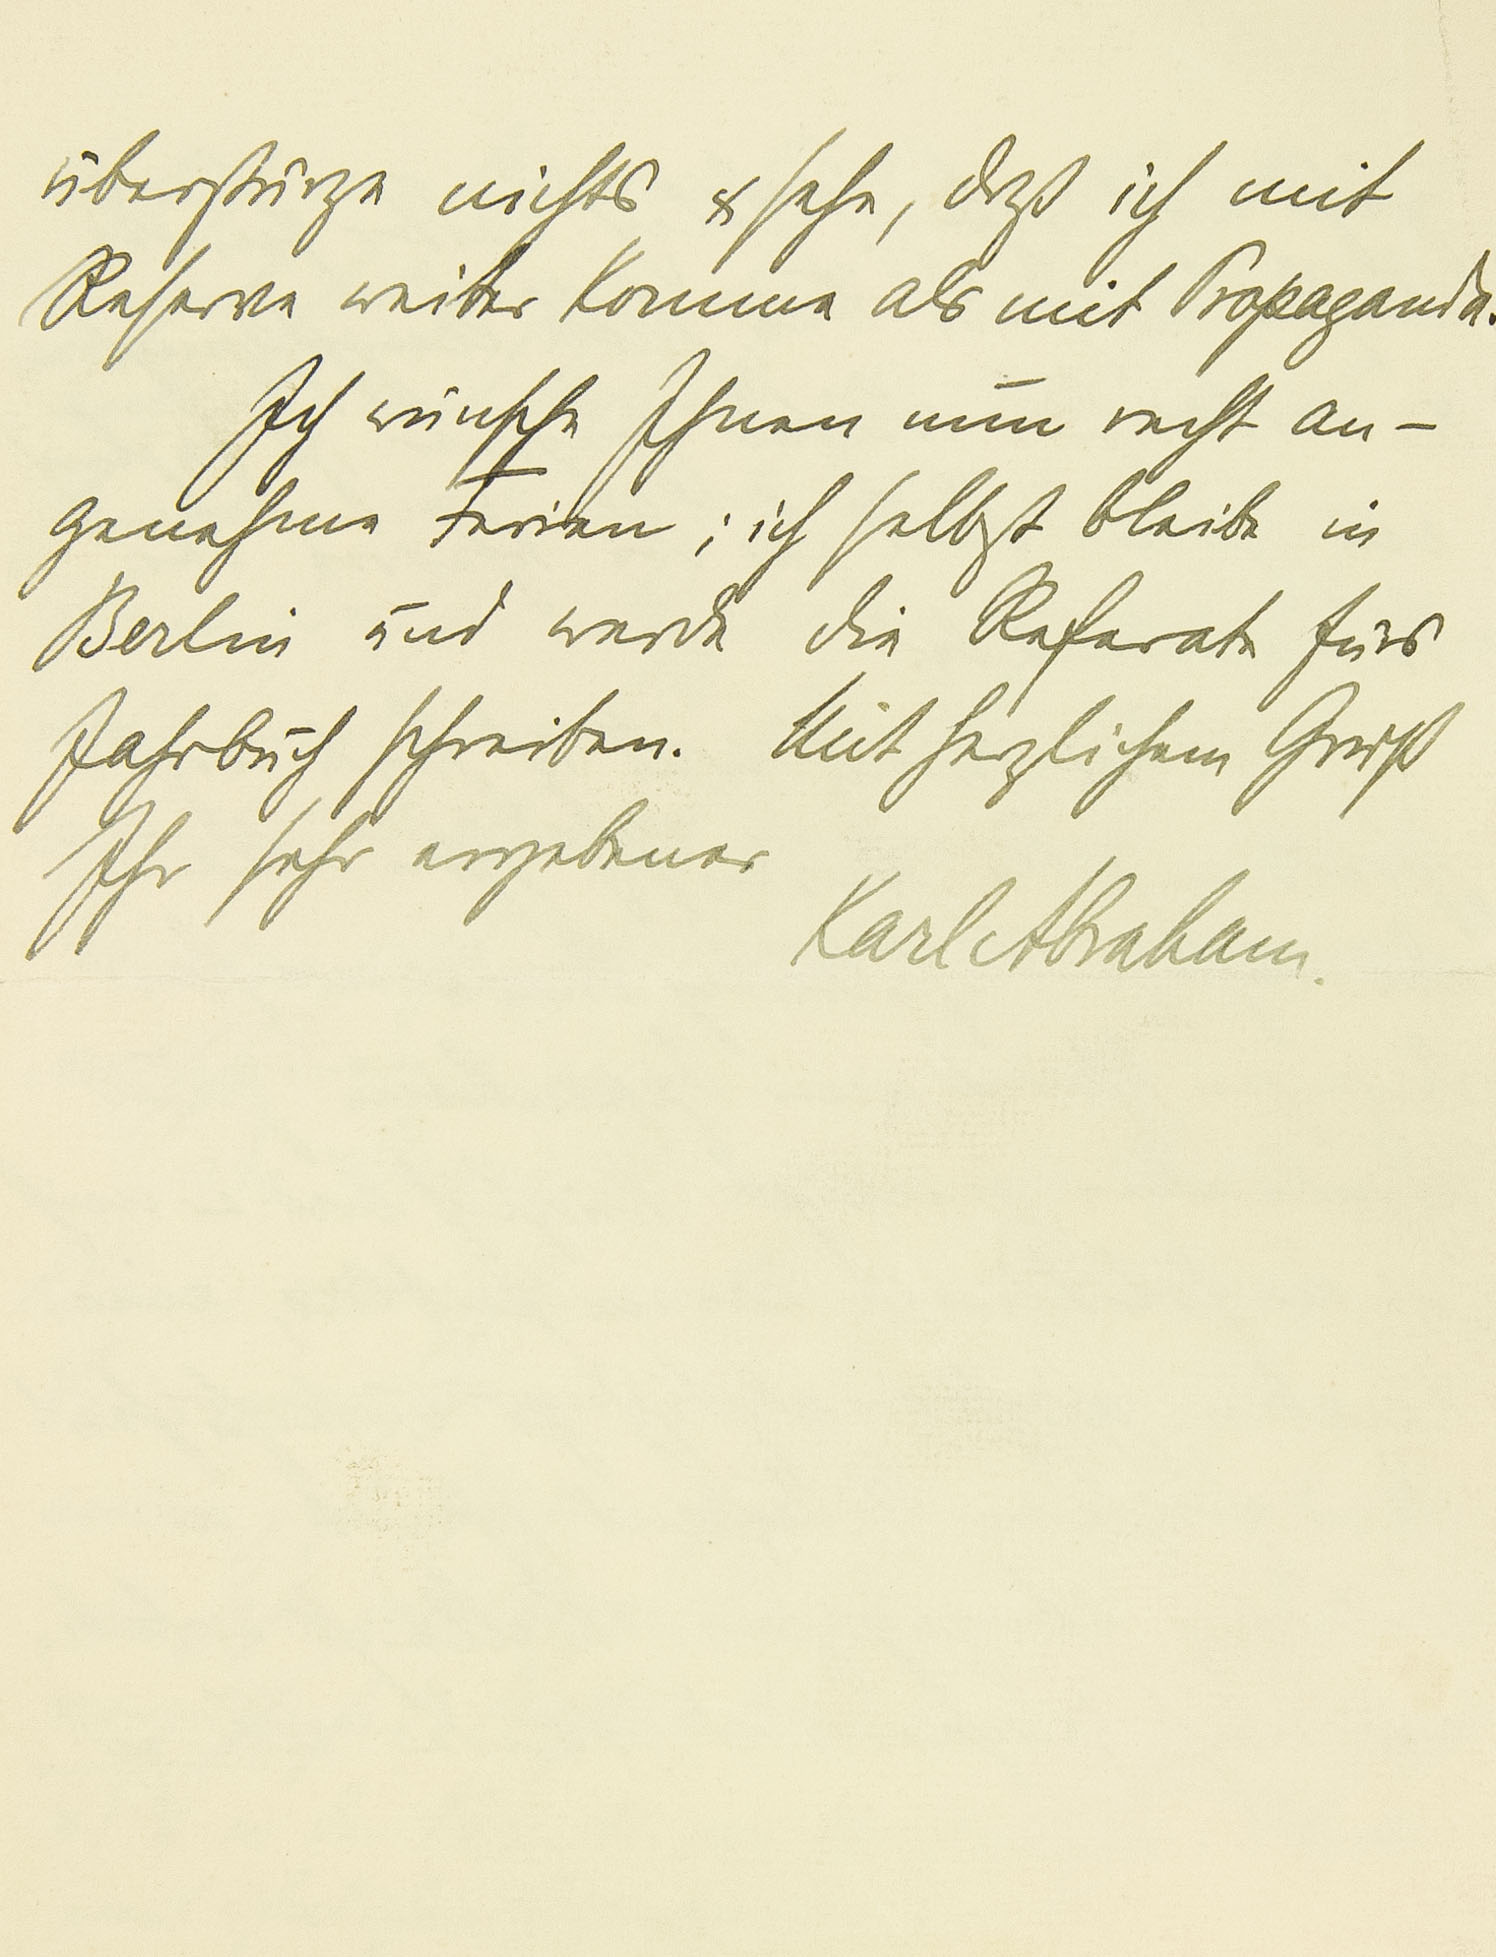 überstürze nichts & sehe, daß ich mit
Reserve weiter komme als mit Propaganda.
Ich wünsche Ihnen nun recht an-
genehme Ferien; ich selbst bleibe in
Berlin und werde die Referate fürs
Jahrbuch schreiben. Mit herzlichem Gruß
Ihr sehr ergebener
Karl Abraham.